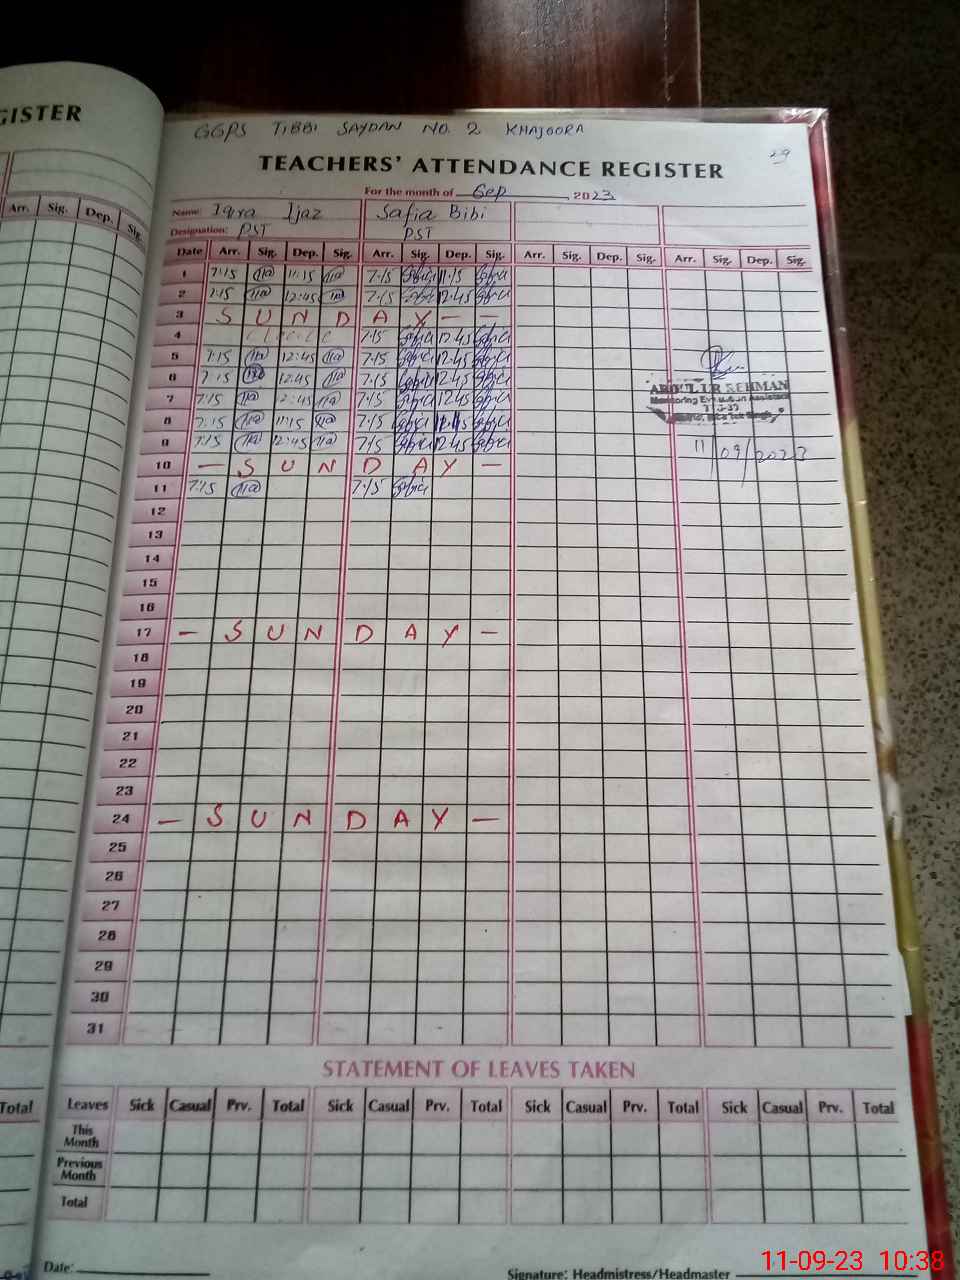 GISTER
Arr. Sig. Dep. Sig.
Total
GGPS TIBBI SAYDAN NO. 2 KHAJOORA
29
TEACHERS' ATTENDANCE REGISTER
For the month of Sep 2023
Name: Iqra Ijaz Safia Bibi
Designation: PST PST
Date Arr. Sig. Dep. Sig. Arr. Sig. Dep. Sig. Arr. Sig. Dep. Sig. Arr. Sig. Dep. Sig.
1 7:15 11:15 7:15 11:15
2 7:15 12:45 7:15 12:45
3 S U N D A Y - -
4 7:15 12:45
5 7:15 12:45 7:15 12:45
6 7:15 12:45 7:15 12:45
7 7:15 12:45 7:15 12:45
8 7:15 11:15 7:15 11:15
9 7:15 12:45 7:15 12:45
10 - S U N D A Y -
11 7:15 7:15
ABDUL UR REHMAN
Monitoring Evaluation Assistant
11/09/2023
12
13
14
15
16
17 - S U N D A Y -
18
19
20
21
22
23
24 - S U N D A Y -
25
26
27
28
29
30
31
STATEMENT OF LEAVES TAKEN
Leaves Sick Casual Prv. Total Sick Casual Prv. Total Sick Casual Prv. Total Sick Casual Prv. Total
This
Month
Previous
Month
Total
Date:
Signature: Headmistress/Headmaster
11-09-23 10:38